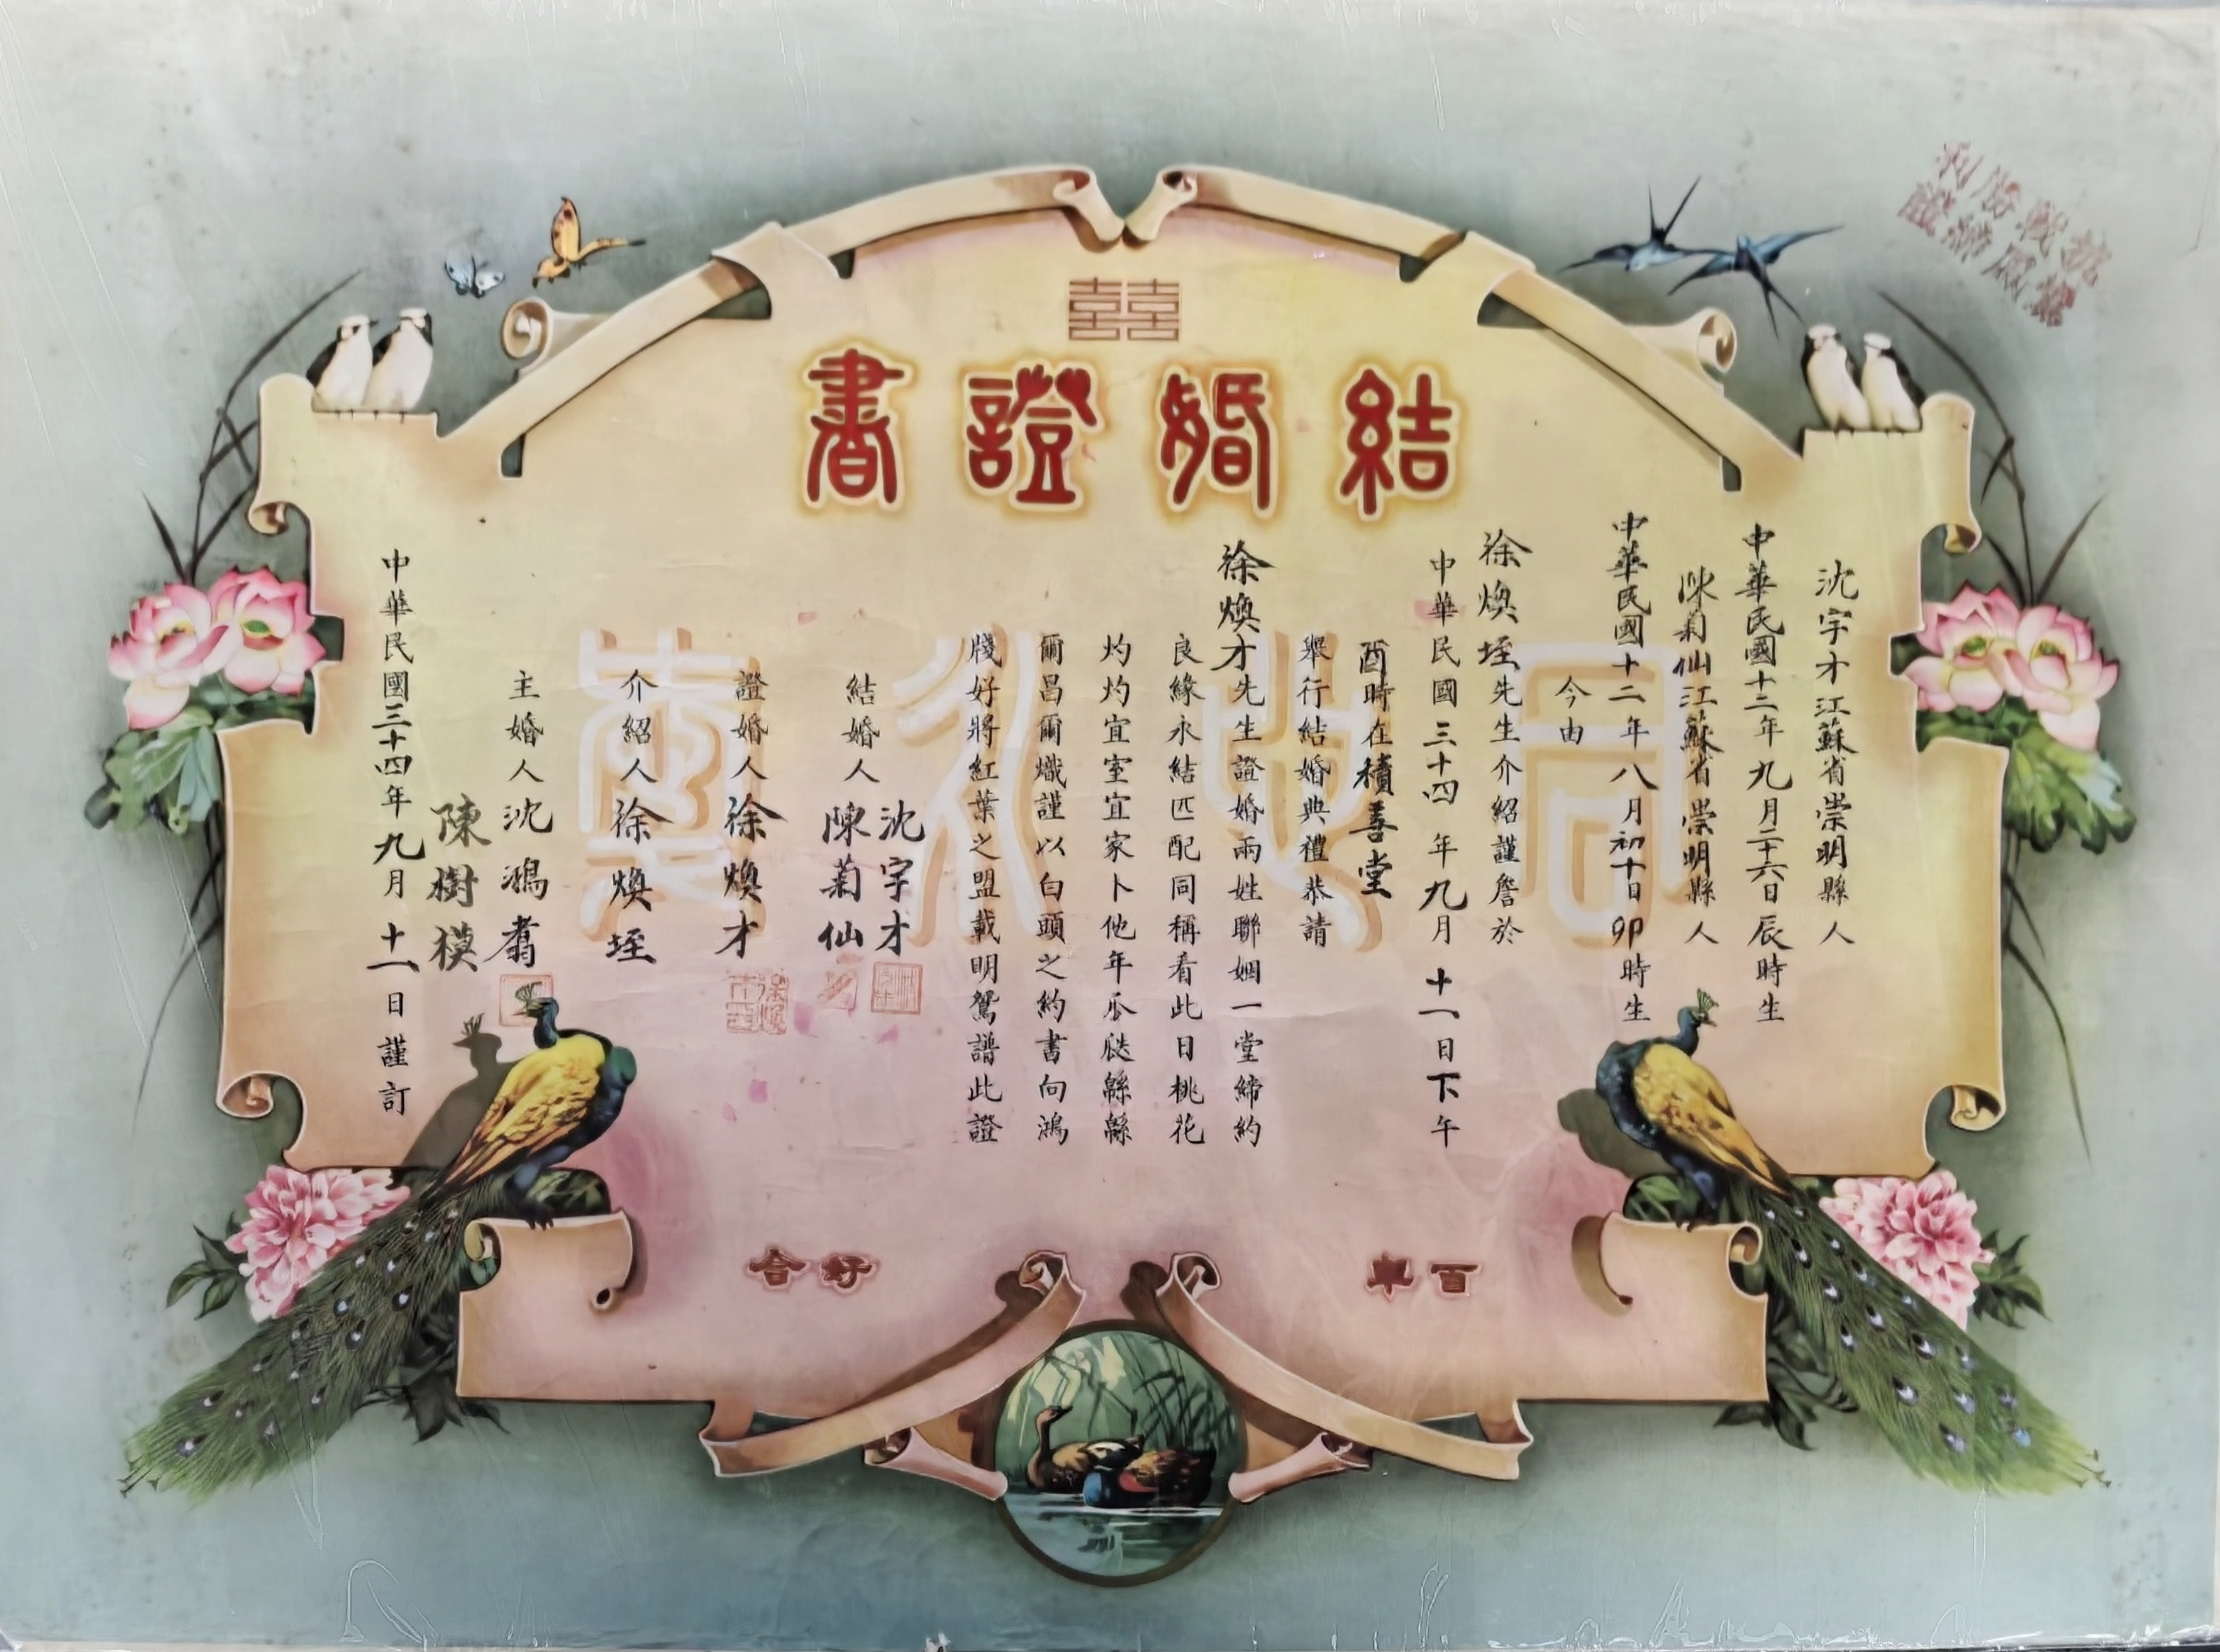 囍
結婚證書
沈宇才江蘇省崇明縣人
中華民國十二年九月二十六日辰時生
陳菊仙江蘇省崇明縣人
中華民國十二年八月初十日卯時生
今由
徐煥垤先生介紹謹詹於
中華民國三十四年九月十一日下午
酉時在積善堂
舉行結婚典禮恭請
徐煥才先生證婚兩姓聯姻一堂締約
良緣永結匹配同稱看此日桃花
灼灼宜室宜家卜他年瓜瓞緜緜
爾昌爾熾謹以白頭之約書向鴻
牋好將紅葉之盟載明鴛譜此證
結婚人沈宇才
陳菊仙
證婚人徐煥才
介紹人徐煥垤
主婚人沈鴻翥
陳樹模
中華民國三十四年九月十一日謹訂
百年
好合